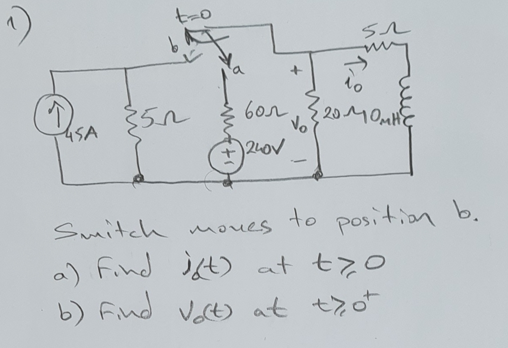 1)
t=0
5Ω
b
a
+
i₀
45A
5Ω
60Ω
V₀
20Ω
10mH
+
-
240V
-
Switch moves to position b.
a) Find i₀(t) at t≥0
b) Find V₀(t) at t≥0⁺